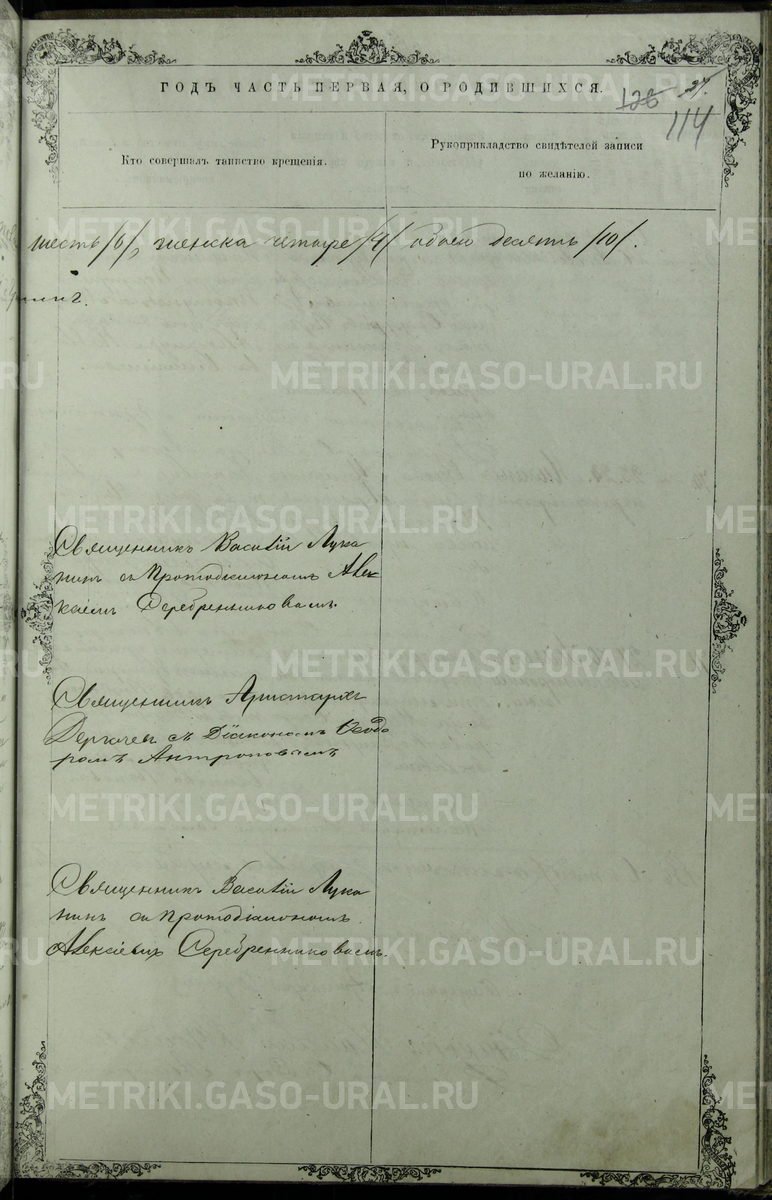 ГОДЪ ЧАСТЬ ПЕРВАЯ, О РОДИВШИХСЯ.
126 37.
114
Кто совершалъ таинство крещенія.
Рукоприкладство свидѣтелей записи
по желанію.
шесть /6/, женска четыре /4/ обоего десять /10/.
Священникъ Василій Лука
нинъ съ Протодіакономъ Алек
сіемъ Серебренниковымъ.
Священникъ Аристархъ
съ Діакономъ Ѳеодо
ромъ Антроповымъ
Священникъ Василій Лука
нинъ съ Протодіакономъ
Алексіемъ Серебренниковымъ.
METRIKI.GASO-URAL.RU